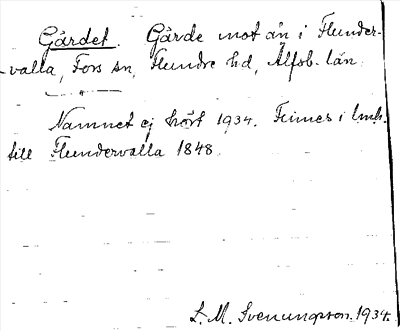 Gärdet. Gärde mot ån i Flunder-
valla, Fors sn, Flundre hd, Älfsb. län.
Namnet ej hört 1934. Finnes i lmh.
till Flundervalla 1848.
S. M. Svenungsson. 1934.